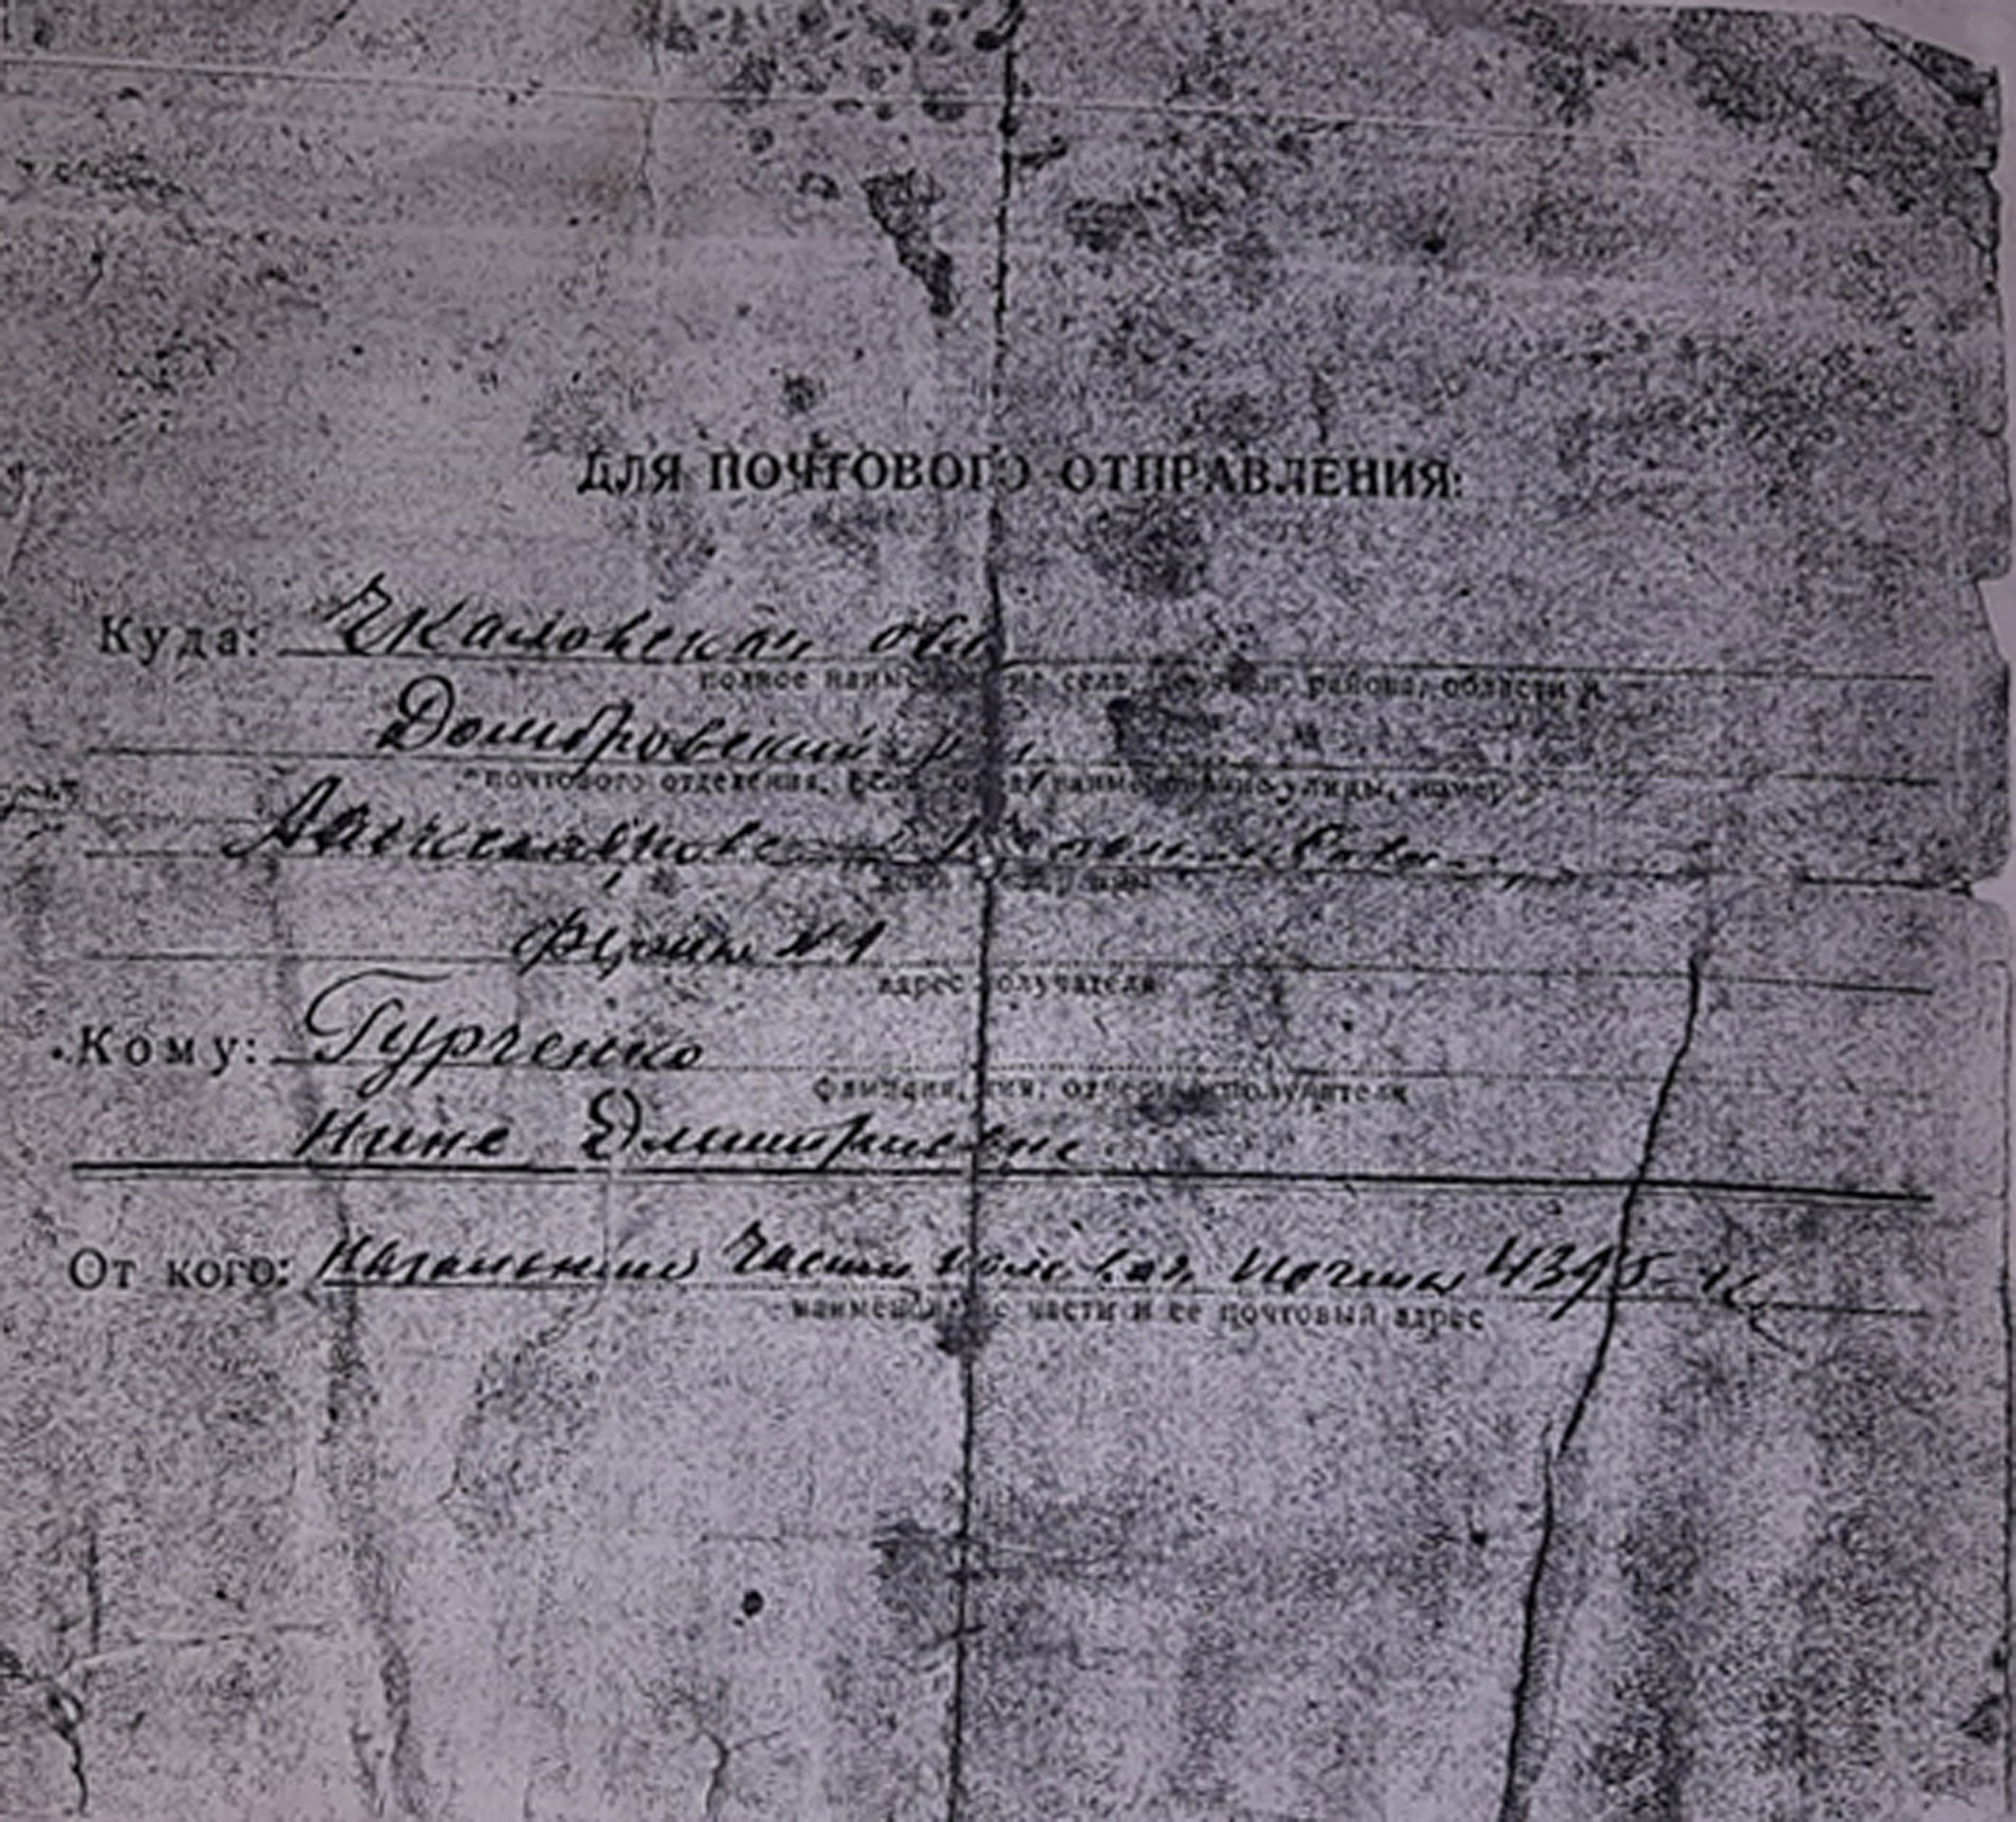 ДЛЯ ПОЧТОВОГО ОТПРАВЛЕНИЯ:
Куда: Чкаловская обл
полное наименование села, района, области и
Домбровский р
почтового отделения, наименование улицы, номер
ферма №1
адрес получателя
Кому: Гурченко
фамилия, имя, отчество получателя
Нине Дмитриевне
От кого: Начальника части полевая почта
наименование части и ее почтовый адрес